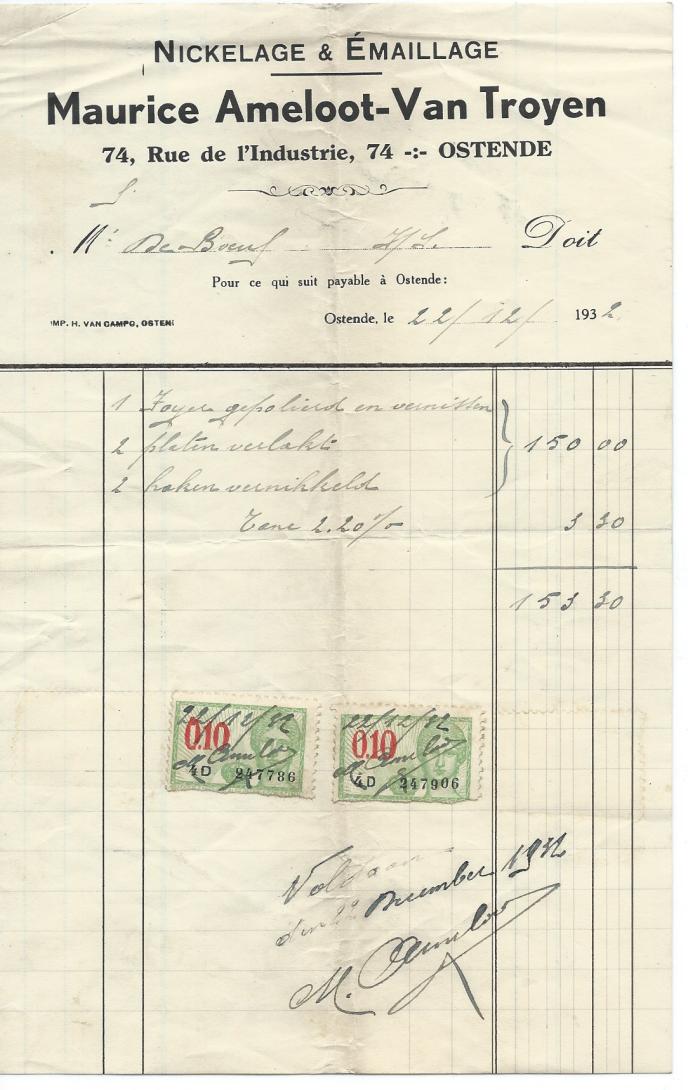 NICKELAGE & ÉMAILLAGE
Maurice Ameloot-Van Troyen
74, Rue de l'Industrie, 74 -:- OSTENDE
Mr De Boeuf Doit
Pour ce qui suit payable à Ostende:
IMP. H. VAN CAMPO, OSTEN
Ostende, le 22/12/ 1932
1 Foyer gepolierd en vernissen
2 platen verlakt 150 00
2 haken vernikkeld
Taxe 2.20% 3 30
153 30
22/12/32 22/12/32
0.10 0.10
M. Ameloo M. Ameloo
4D 247786 4D 247906
Voldaan
den 22 December 1932
M. Ameloo